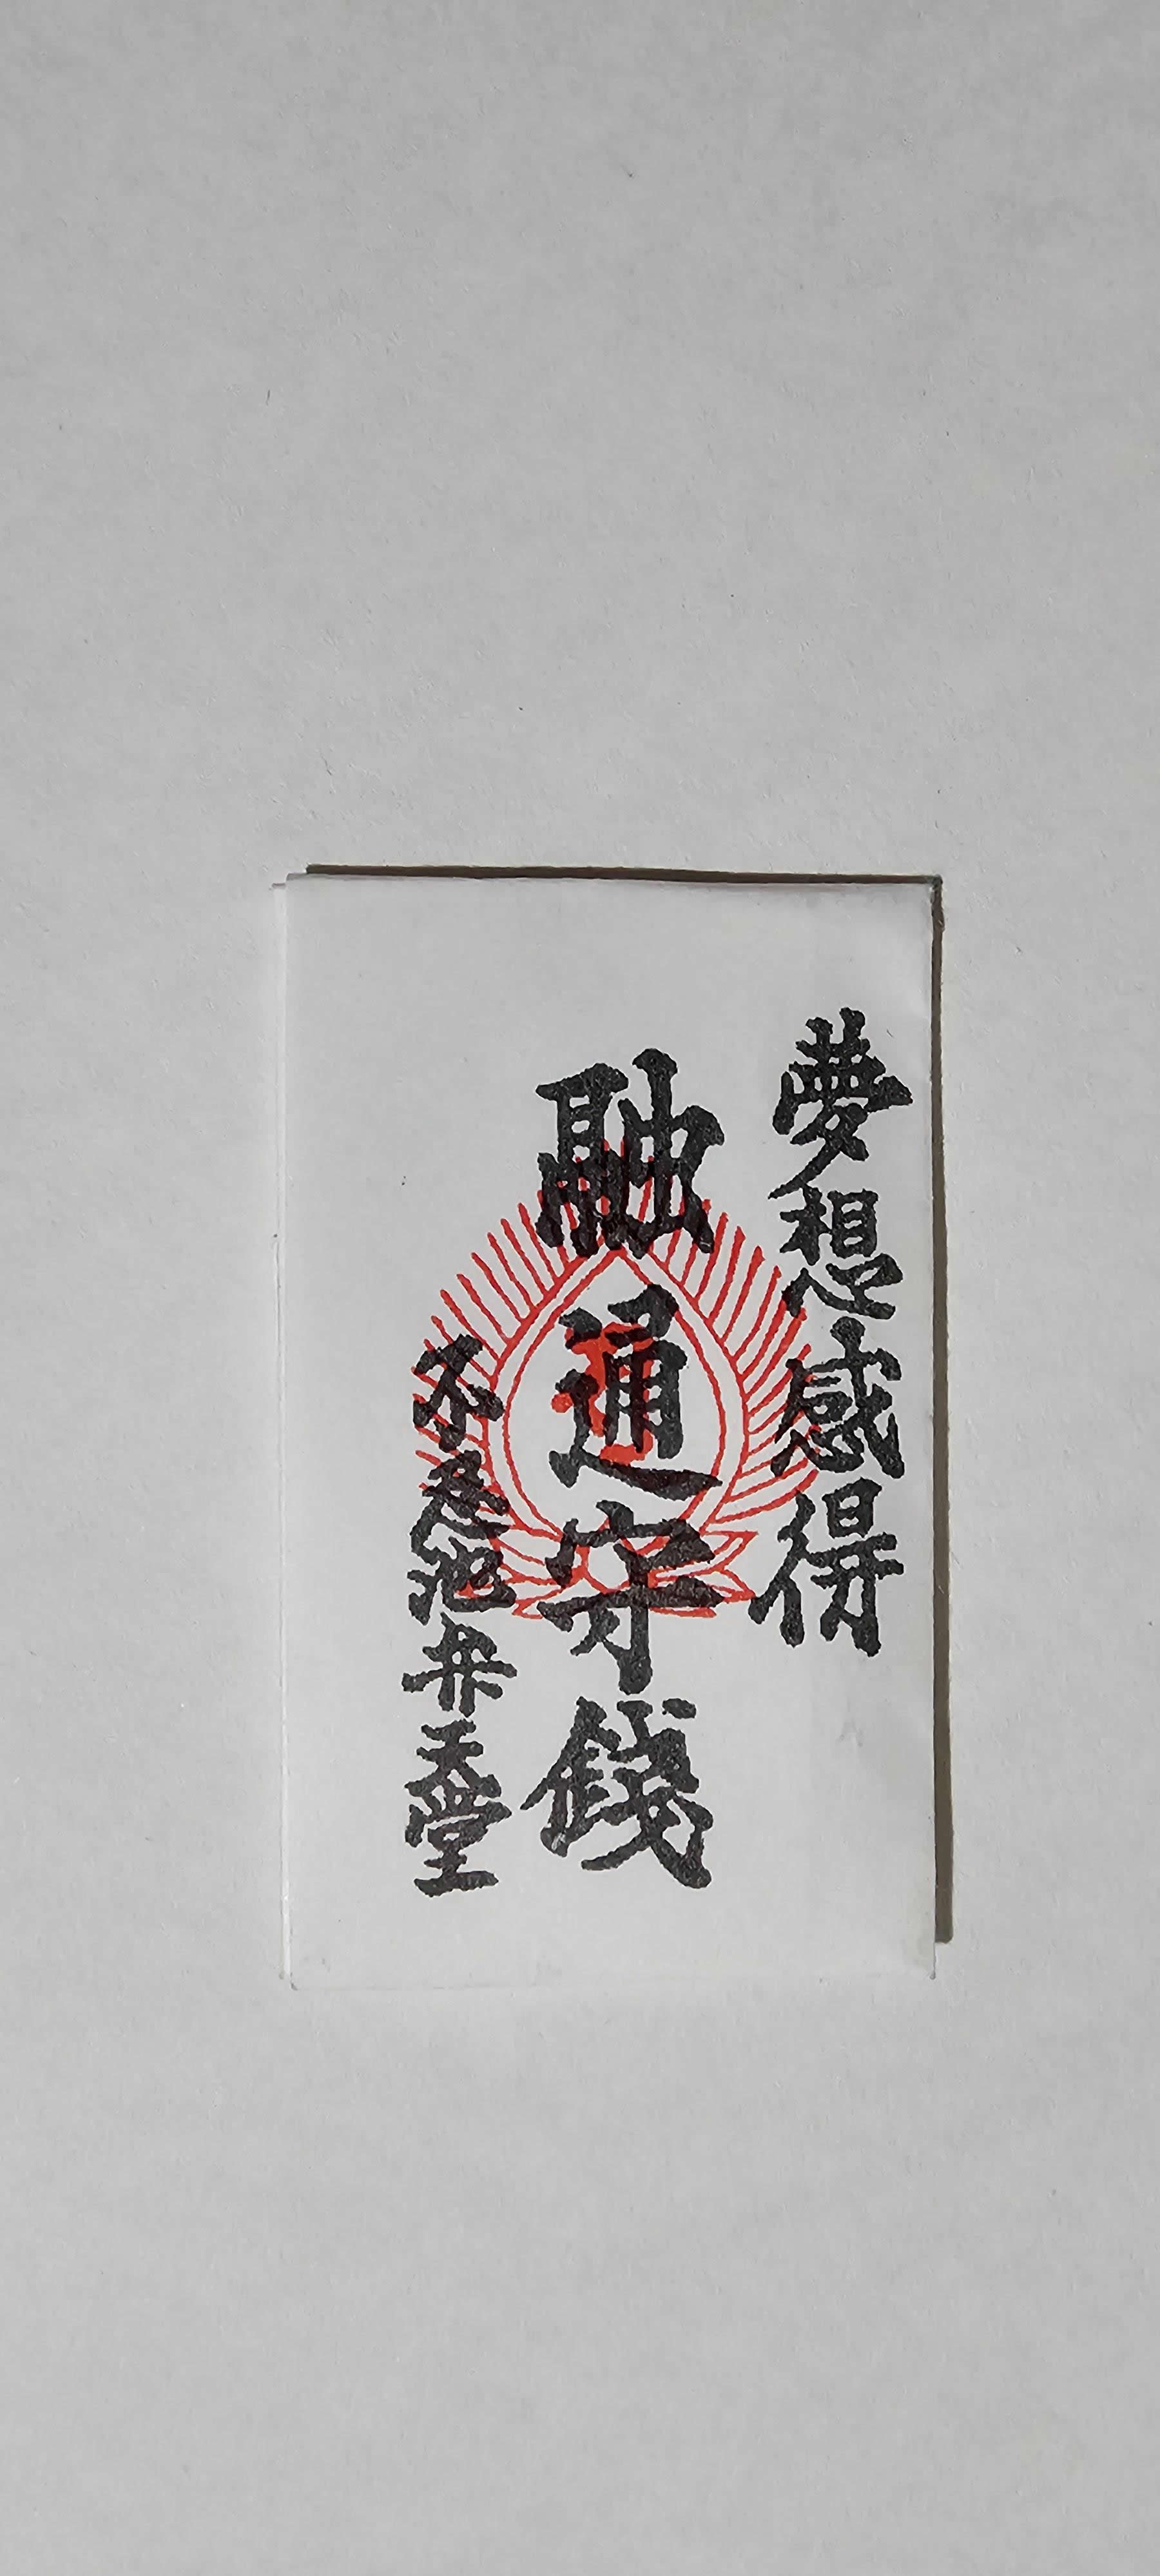 夢想感得
融通守錢
不忍池弁天堂